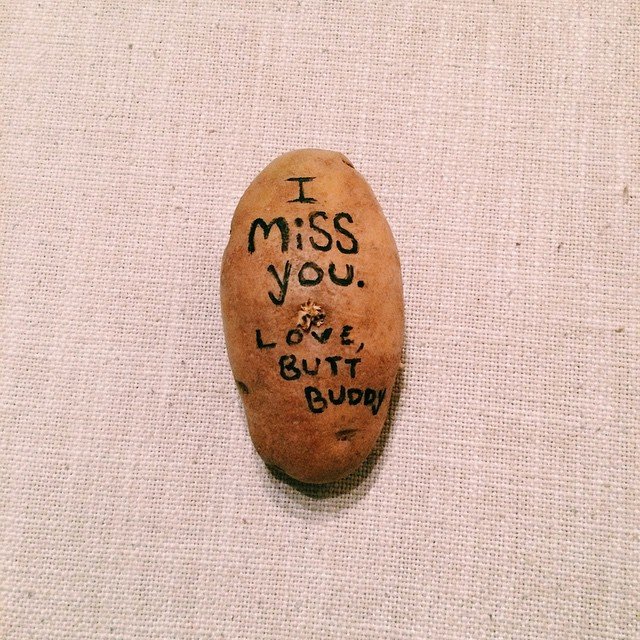 I
MiSS
you.
LOVE,
BUTT
BUDDY